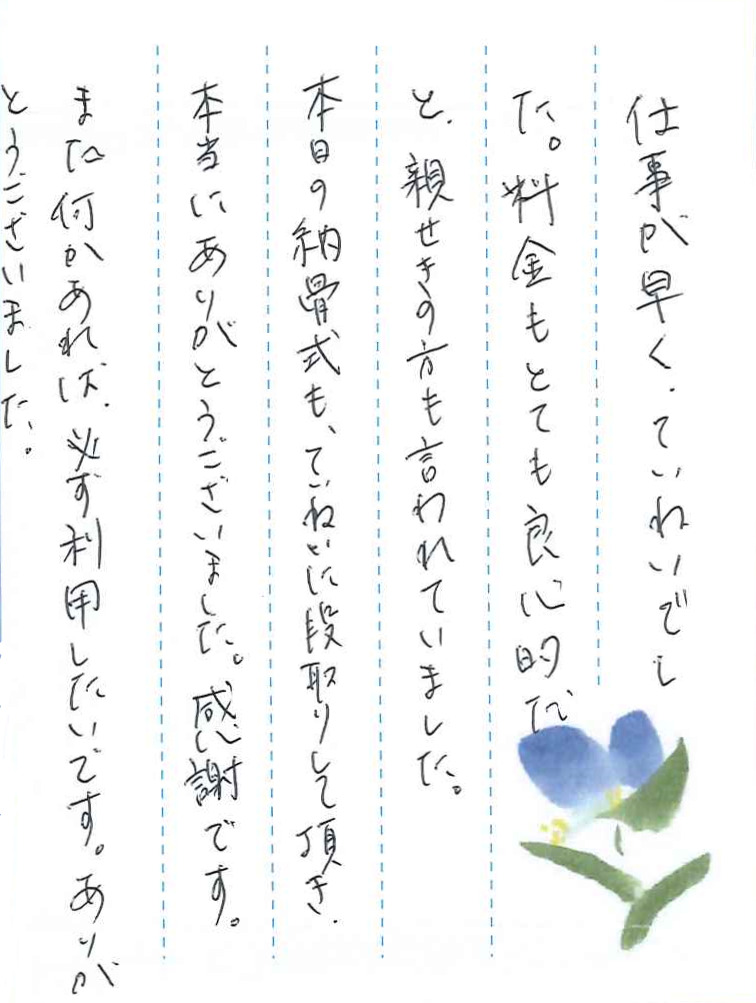 仕事が早く、ていねいでし
た。料金もとても良心的だ
と、親せきの方も言われていました。
本日の納骨式も、ていねいに段取りして頂き、
本当にありがとうございました。感謝です。
また何かあれば、必ず利用したいです。ありが
とうございました。